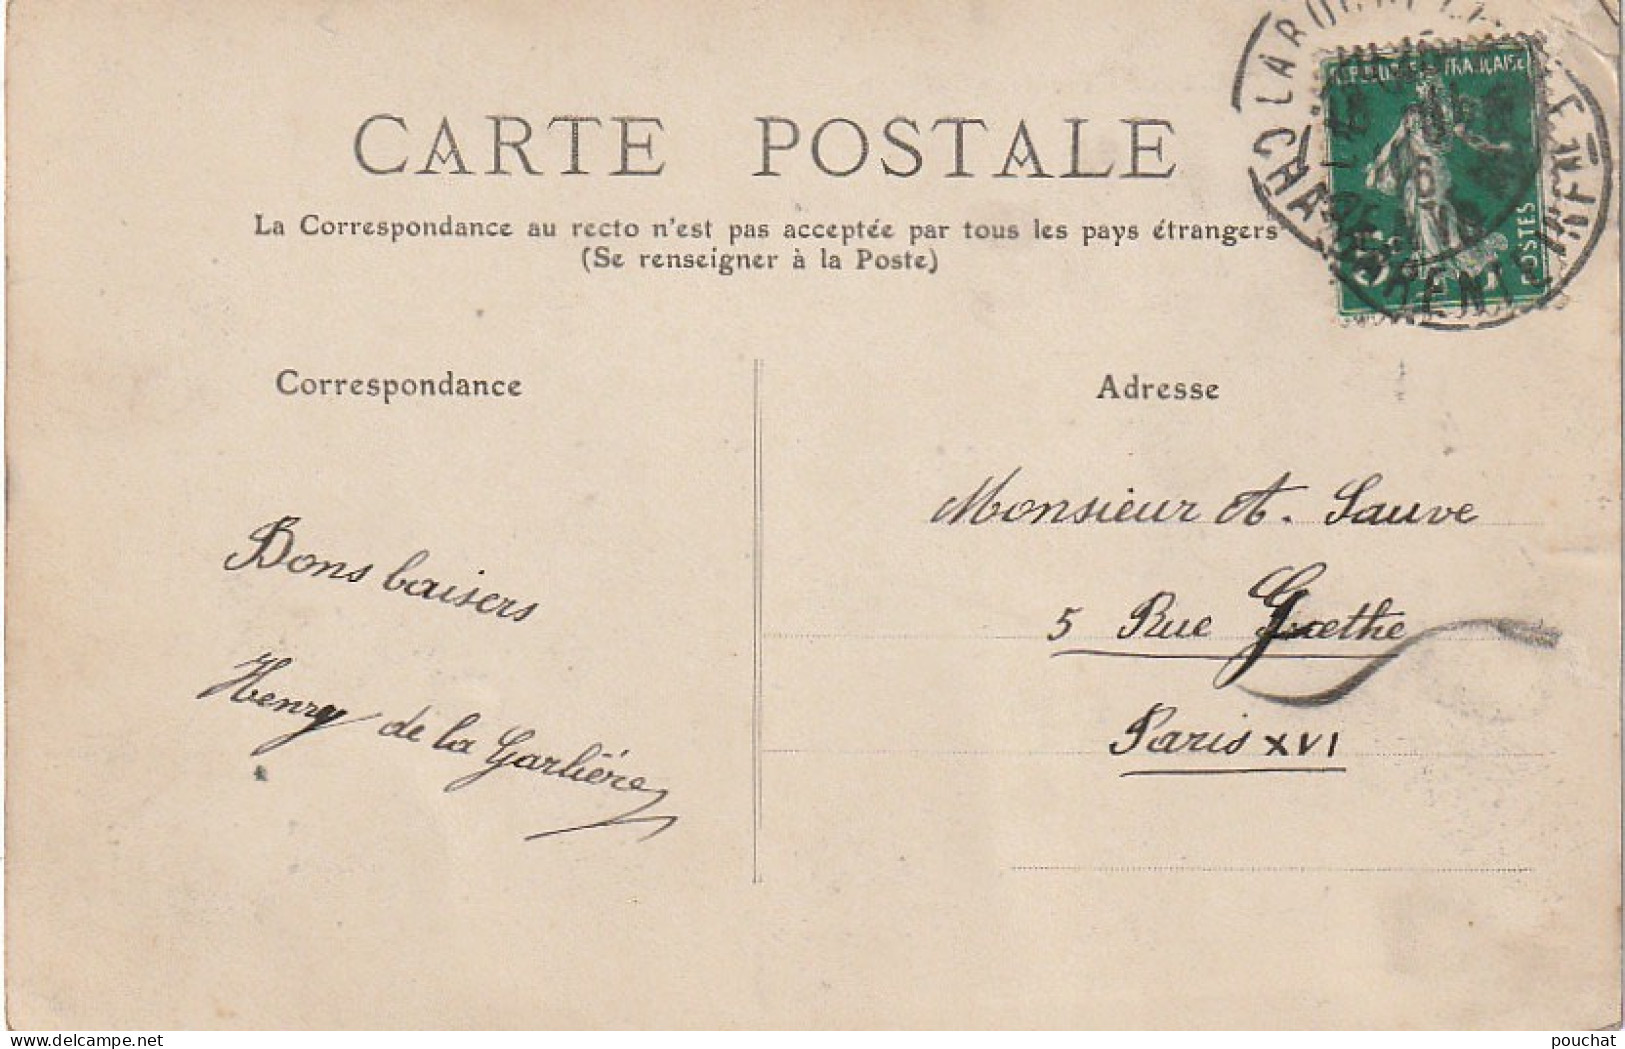 CARTE POSTALE
La Correspondance au recto n'est pas acceptée par tous les pays étrangers
(Se renseigner à la Poste)
Correspondance
Adresse
RÉPUBLIQUE FRANÇAISE
POSTES
CHARENTE INFRE
Monsieur A. Sauve
5 Rue Goethe
Paris XVI
Bons baisers
Henry de la Garlière
delcampe.net
pouchat